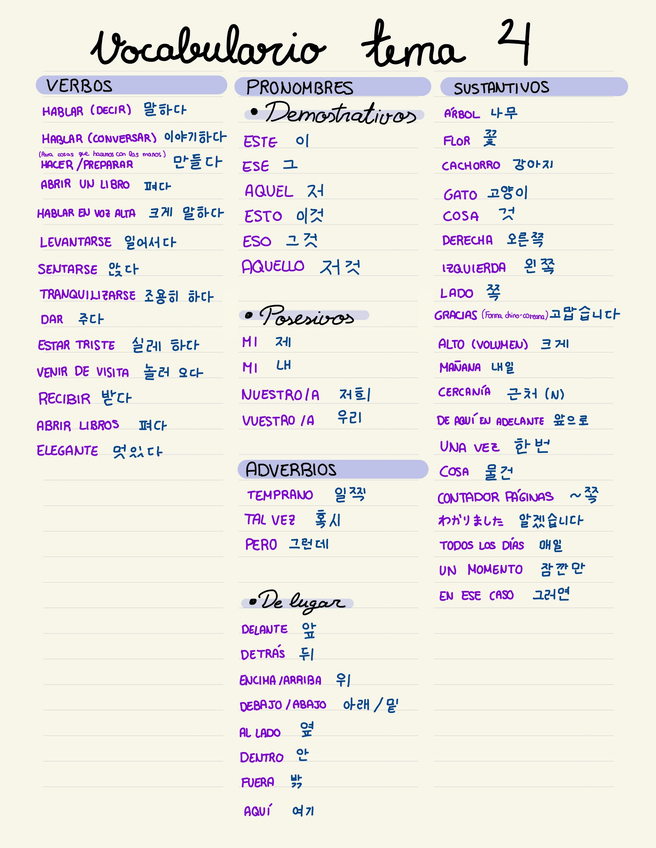 Vocabulario tema 4
VERBOS
HABLAR (DECIR) 말하다
HABLAR (CONVERSAR) 이야기하다
(Para cosas que hacemos con las manos)
HACER/PREPARAR 만들다
ABRIR UN LIBRO 펴다
HABLAR EN VOZ ALTA 크게 말하다
LEVANTARSE 일어서다
SENTARSE 앉다
TRANQUILIZARSE 조용히 하다
DAR 주다
ESTAR TRISTE 실레 하다
VENIR DE VISITA 놀러 오다
RECIBIR 받다
ABRIR LIBROS 펴다
ELEGANTE 멋있다
PRONOMBRES
• Demostrativos
ESTE 이
ESE 그
AQUEL 저
ESTO 이것
ESO 그것
AQUELLO 저것
• Posesivos
MI 제
MI 내
NUESTRO/A 저희
VUESTRO/A 우리
ADVERBIOS
TEMPRANO 일찍
TAL VEZ 혹시
PERO 그런데
• De lugar
DELANTE 앞
DETRÁS 뒤
ENCIMA/ARRIBA 위
DEBAJO/ABAJO 아래/밑
AL LADO 옆
DENTRO 안
FUERA 밖
AQUÍ 여기
SUSTANTIVOS
ÁRBOL 나무
FLOR 꽃
CACHORRO 강아지
GATO 고양이
COSA 것
DERECHA 오른쪽
IZQUIERDA 왼쪽
LADO 쪽
GRACIAS (Forma chino-coreana) 고맙습니다
ALTO (VOLUMEN) 크게
MAÑANA 내일
CERCANÍA 근처 (N)
DE AQUÍ EN ADELANTE 앞으로
UNA VEZ 한번
COSA 물건
CONTADOR PÁGINAS ~쪽
わかりました 알겠습니다
TODOS LOS DÍAS 매일
UN MOMENTO 잠깐만
EN ESE CASO 그러면